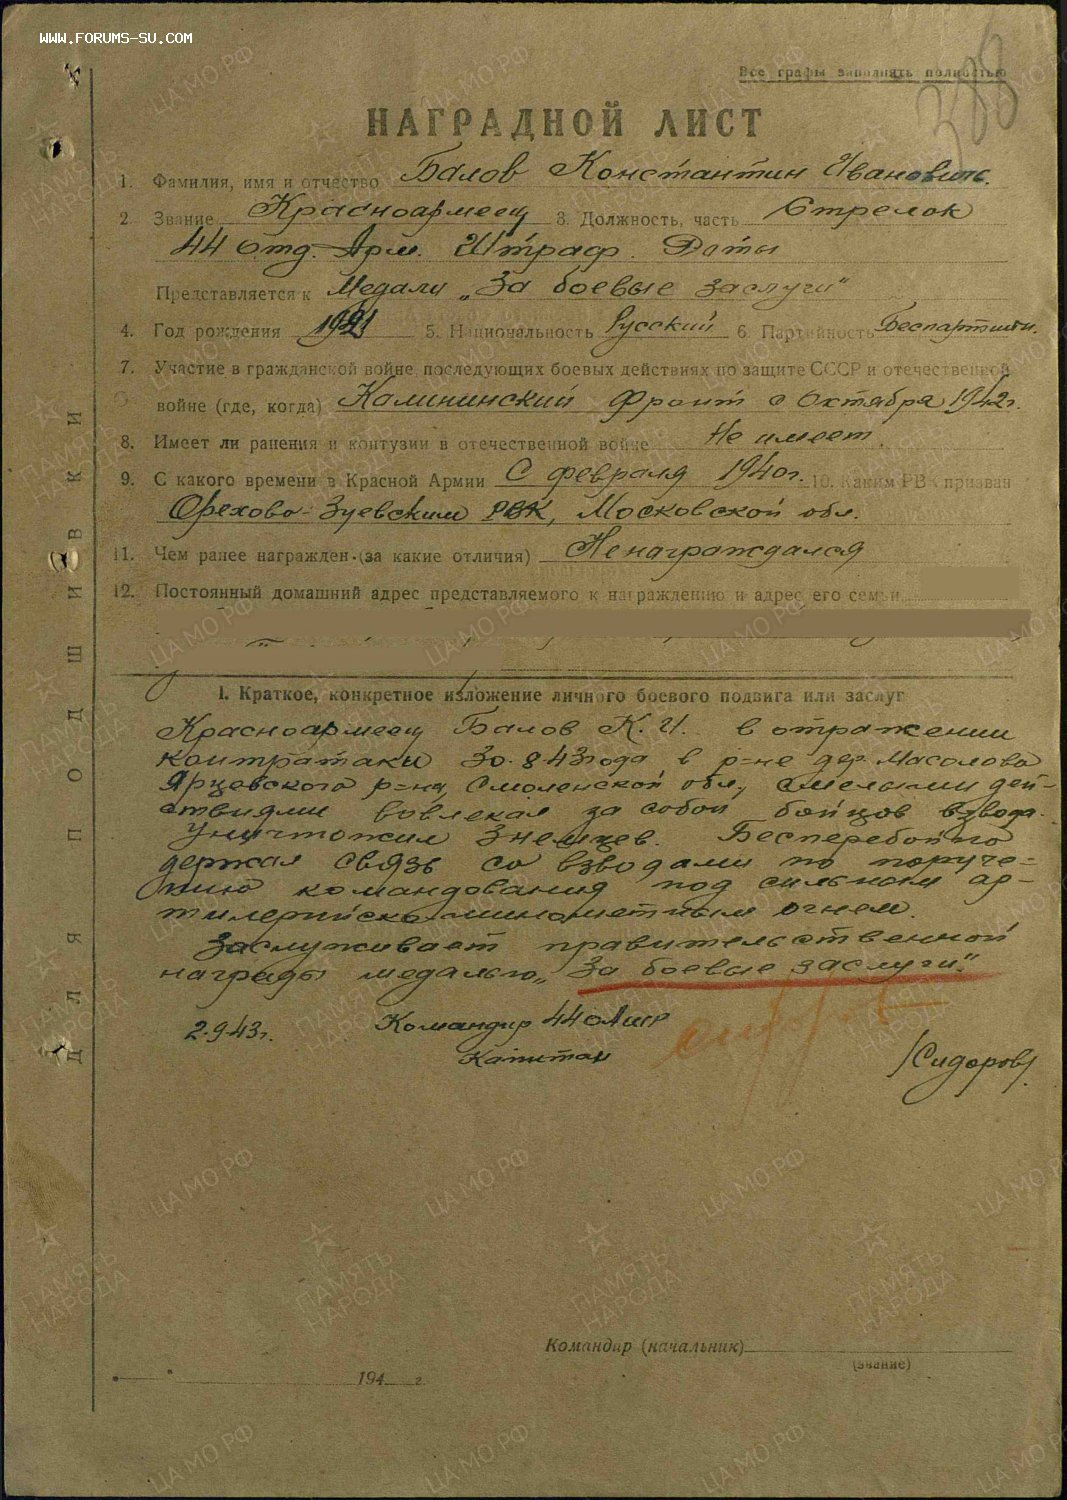 WWW.FORUMS-SU.COM
Все графы заполнять полностью
388
НАГРАДНОЙ ЛИСТ
1. Фамилия, имя и отчество Балов Константин Иванович.
2 Звание Красноармеец 3. Должность, часть Стрелок
44 отд. Арм. Штраф. Роты
Представляется к Медали „За боевые заслуги"
4. Год рождения 1921 5. Национальность Русский 6. Партийность Беспартийн.
7. Участие в гражданской войне, последующих боевых действиях по защите СССР и отечественной
войне (где, когда) Калининский фронт с октября 1942г.
8. Имеет ли ранения и контузии в отечественной войне Не имеет.
9. С какого времени в Красной Армии С февраля 1940г. 10. Каким РВК призван
Орехово-Зуевским РВК, Московской обл.
11. Чем ранее награжден (за какие отличия) Не награждался
12. Постоянный домашний адрес представляемого к награждению и адрес его семьи
I. Краткое, конкретное изложение личного боевого подвига или заслуг
Красноармеец Балов К.И. в отражении
контратаки 30.8.43года в р=не дер. Масолова
Ярцевского р=на, Смоленской обл., смелыми дей-
ствиями вовлекал за собой бойцов взвода.
Уничтожил 3 немцев. Бесперебойно
держал связь со взводами по поруче=
нию командования под сильном ар-
тилерийско-минометным огнем.
Заслуживает правительственной
награды медалью „За боевые заслуги".
2.9.43г. Командир 44 ОАШР
Капитан /Сидоров/
Командир (начальник)
(звание)
194 г.
ДЛЯ ПОДШИВКИ
ЦА МО РФ
ПАМЯТЬ НАРОДА